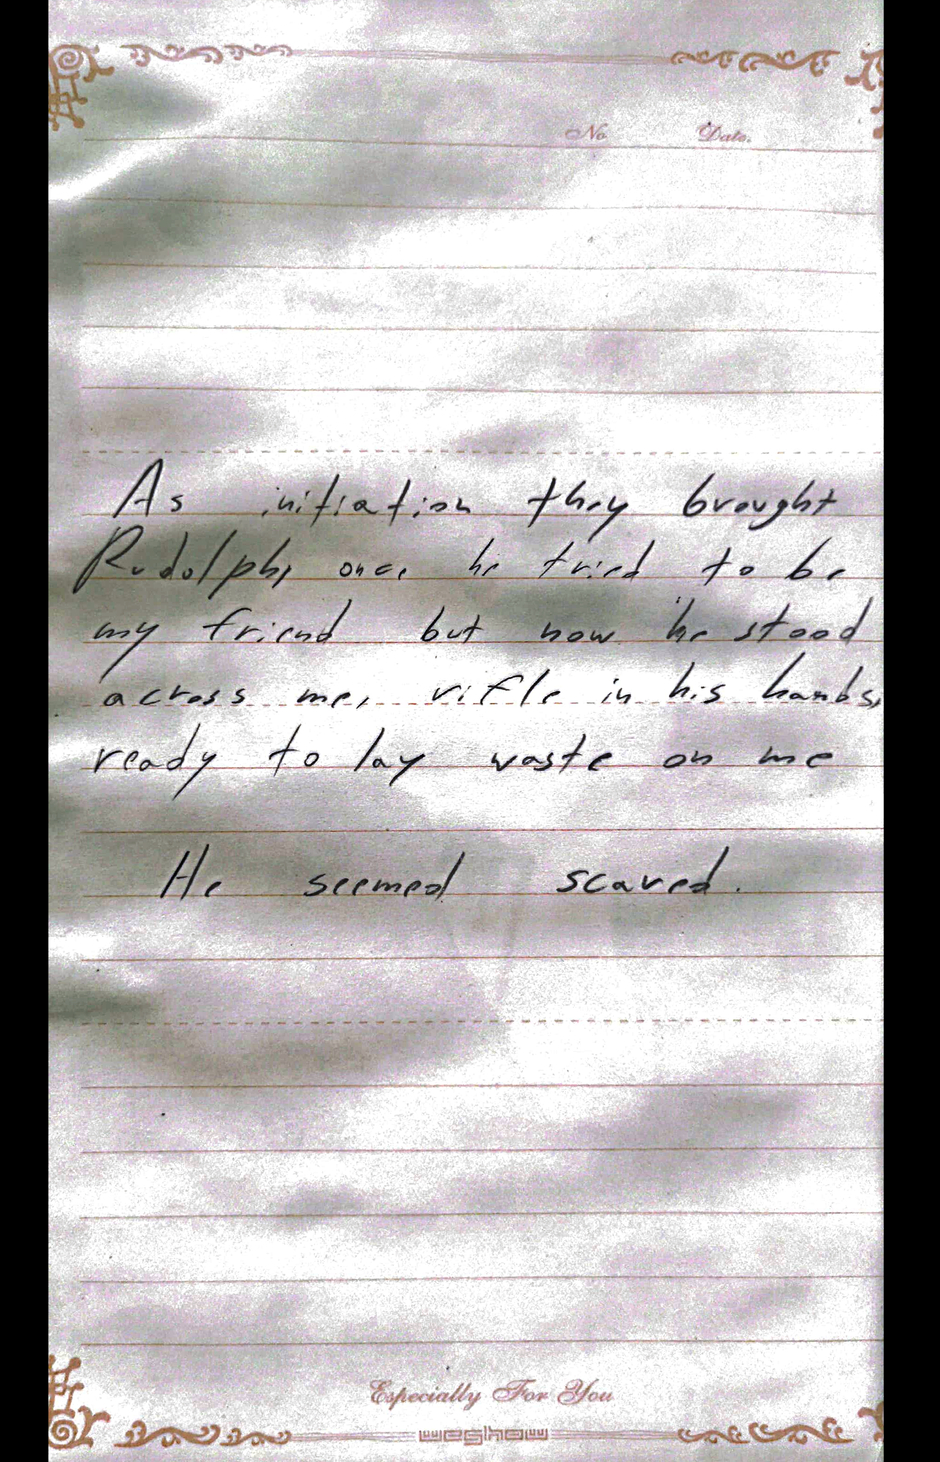 No. Date.
As initiation they brought
Rudolph, once he tried to be
my friend but now he stood
across me, rifle in his hands,
ready to lay waste on me
He seemed scared.
Especially For You
weshow